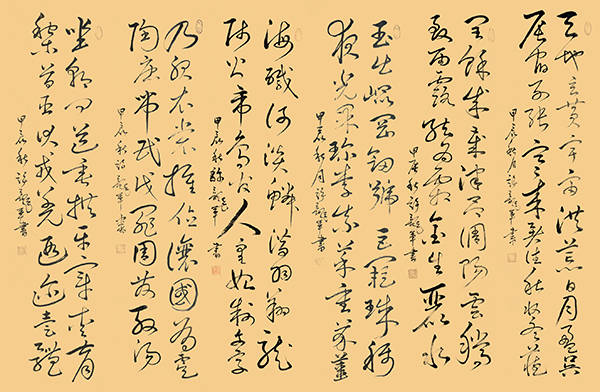 天地玄黃宇宙洪荒日月盈昃
辰宿列張寒來暑往秋收冬藏
甲辰秋月 龍軍書
閏餘成歲律呂調陽雲騰
致雨露結為霜金生麗水
甲辰秋 龍軍書
玉出崑岡劍號巨闕珠稱
夜光果珍李柰菜重芥薑
甲辰秋月 龍軍書
海鹹河淡鱗潛羽翔龍
師火帝鳥官人皇始制文字
甲辰秋 龍軍書
乃服衣裳推位讓國有虞
陶唐弔民伐罪周發殷湯
甲辰秋 龍軍書
坐朝問道垂拱平章愛育
黎首臣伏戎羌遐邇壹體
甲辰秋 龍軍書